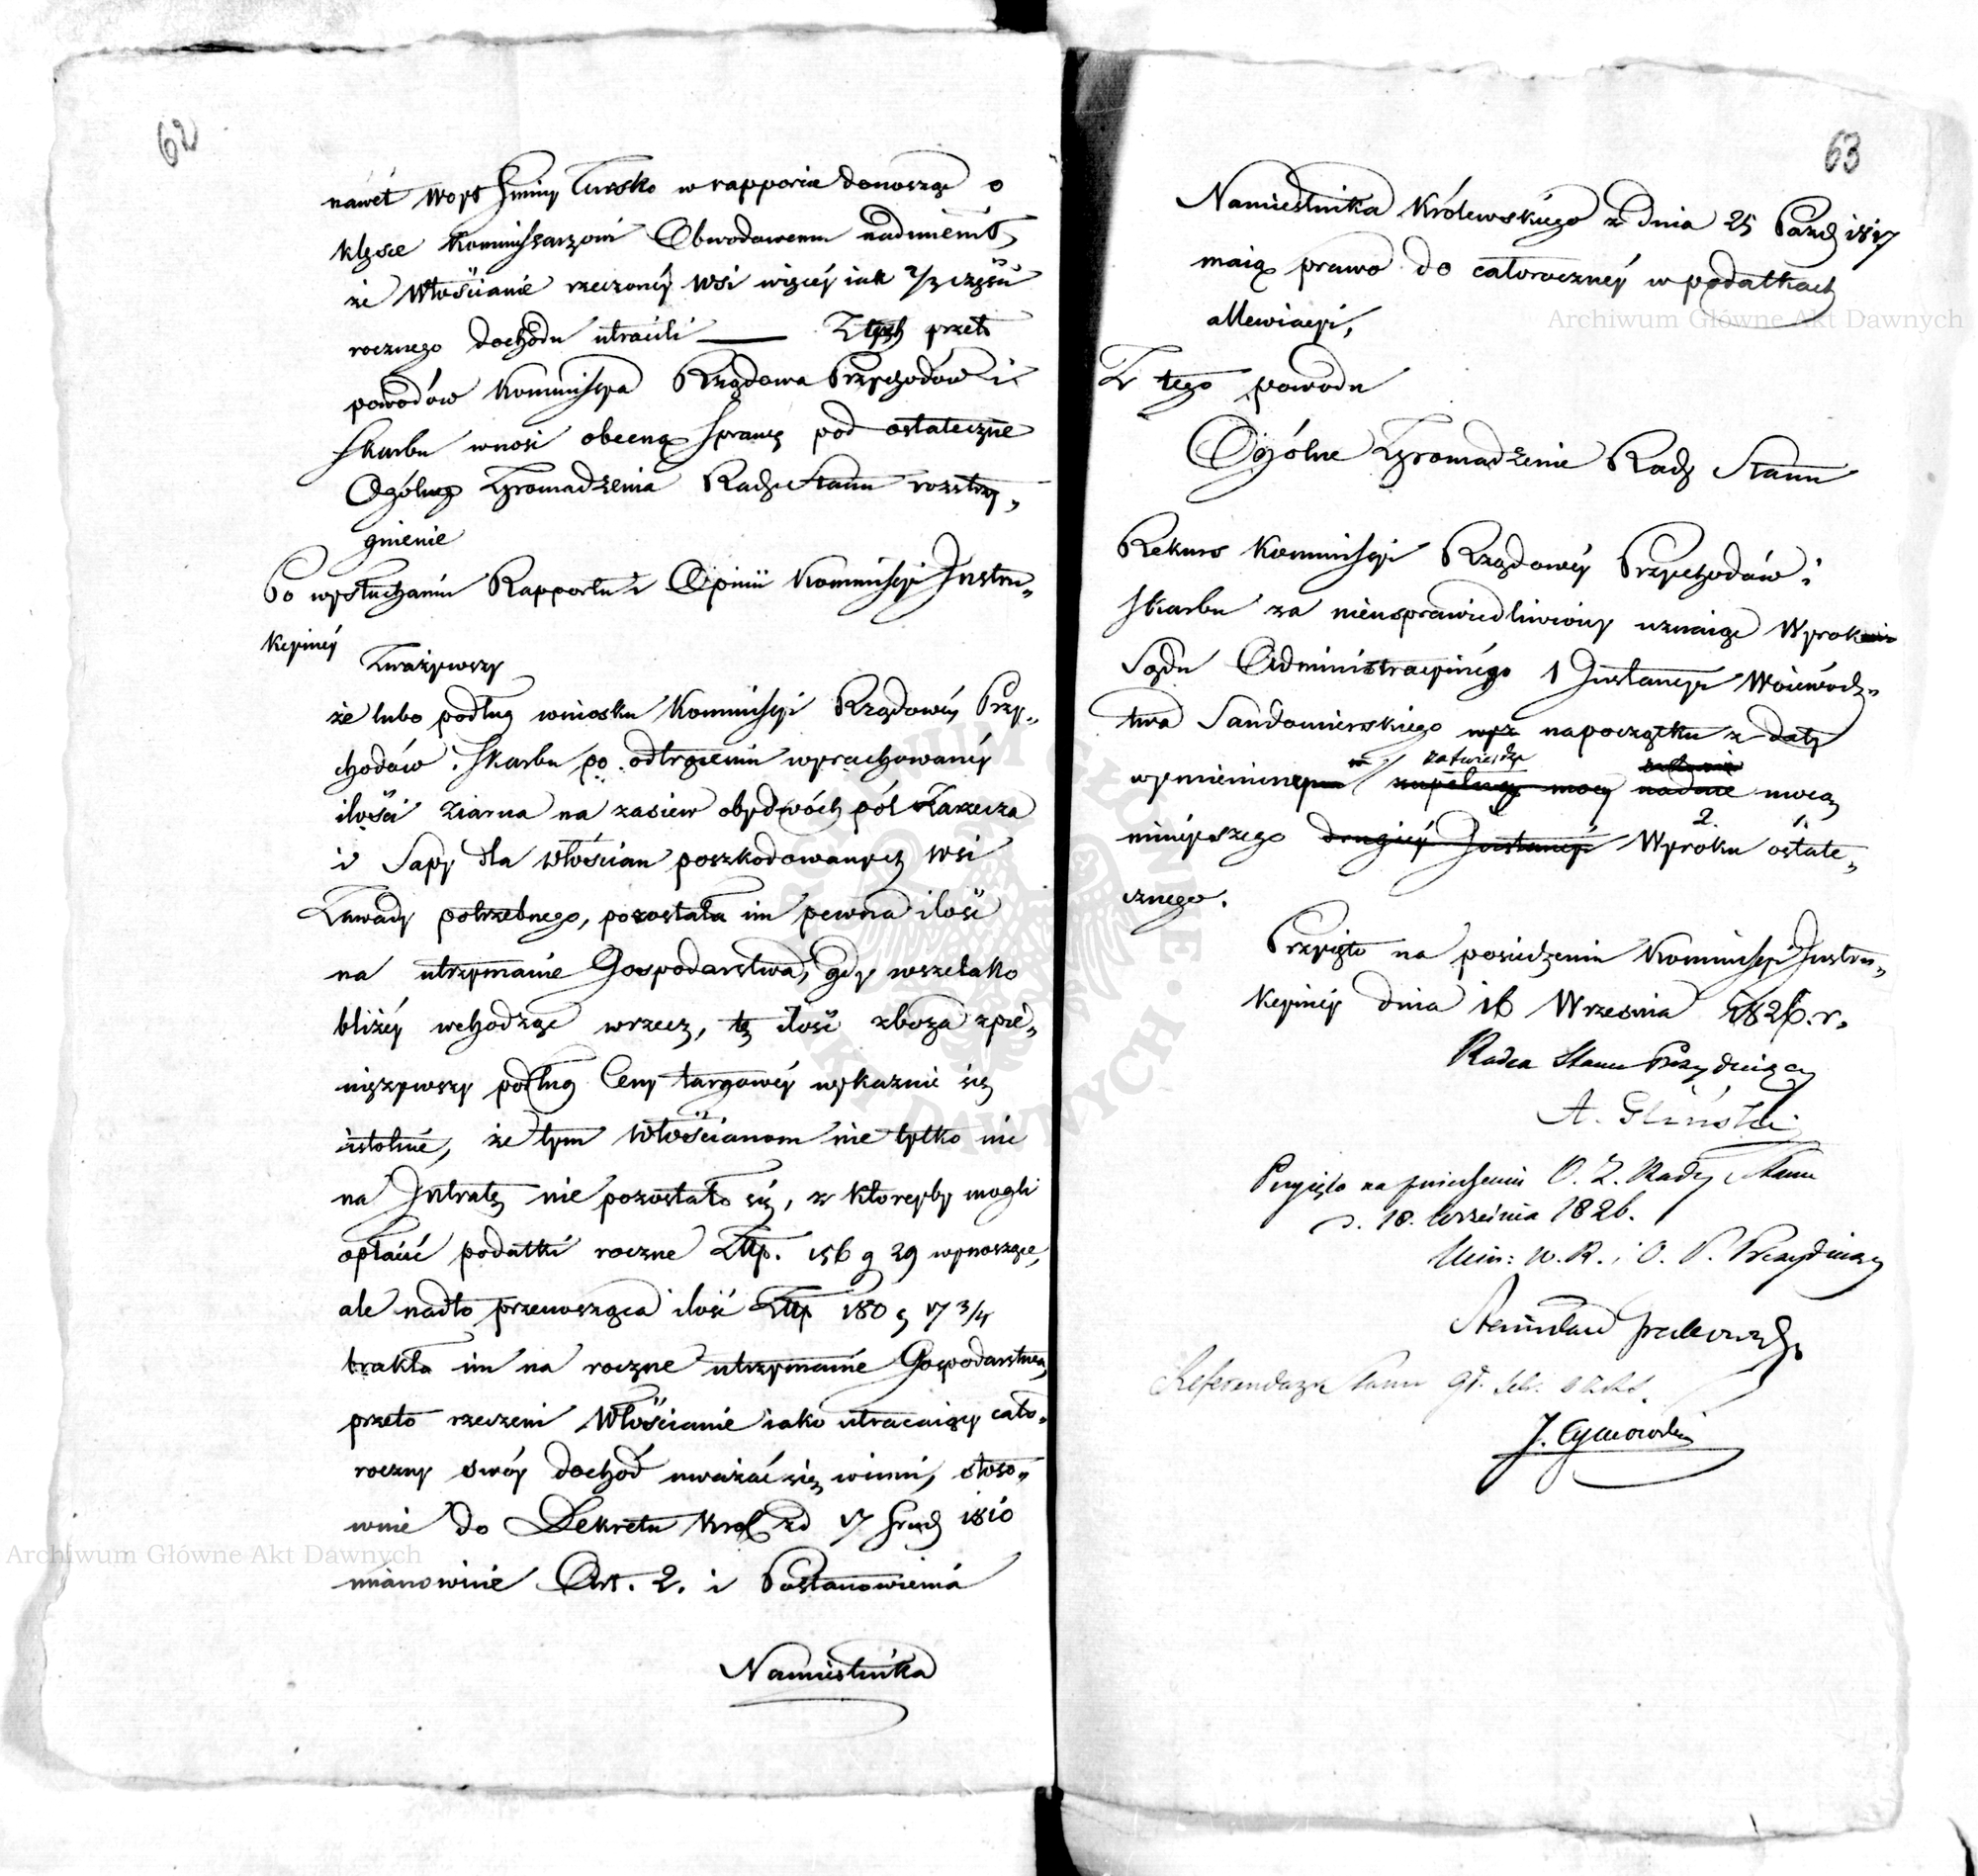 62
nawet Woyt Gminy Tursko w rapporcie donosząc o
klęsce Kommissarzowi Obwodowemu nadmienił,
że Włościanie rzeczonéy wsi więcéy iak 2/3 części
rocznego dochodu utracili — Z tych przeto
powodów Kommissya Rządowa Przychodów i
Skarbu wnosi obecną sprawę pod ostateczne
Ogólnego Zgromadzenia Rady Stanu rozstrzy„
gnienie
Po wysłuchaniu Rapportu i Opinii Kommissyi Instru„
kcyinéy
Zważywszy
że lubo podług wniosku Kommissyi Rządowéy Przy„
chodów i Skarbu po odtrąceniu wyrachowanéy
ilości ziarna na zasiew obydwóch pól Zarzecza
i Sapy dla Włościan poszkodowanych wsi
Zawady potrzebnego, pozostała im pewna ilość
na utrzymanie Gospodarstwa, gdy wszelako
bliżéy wchodząc w rzecz, tę ilość zboża spie„
niężywszy podług Ceny targowéy wykaznie się
istotnie, że tym Włościanom nie tylko nic
na Intratę nie pozostało się, z któreyby mogli
opłacić podatki roczne Złłp. 156 g 29 wynoszące,
ale nadto przenosząca ilość Złłp 180 g 17 3/4
brakła im na roczne utrzymanie Gospodarstwa,
przeto rzeczeni Włościanie iako utracaiący cało„
roczny swóy dochód uważać się winni, stoso„
wnie do Dekretu Król z d 17 Grud 1810
mianowicie Art. 2. i Postanowienia
Namiestnika
63
Namiestnika Królewskiego z dnia 25 Paźdz 1817
maią prawo do całorocznéy w podatkach
allewiacyi,
Z tego powodu
Ogólne Zgromadzenie Rady Stanu
Rekurs Kommissyi Rządowéy Przychodów i
Skarbu za nieusprawiedliwiony uznaiąc Wyrok
Sądu Administracyinégo 1 Instancyi Woiewódz„
twa Sandomierskiego wyż na początku z daty
zatwierdza
wymieniony zupełną mocy nadaie mocą
2. 1.
ninieyszego drugiéy Instancyi Wyroku ostate„
cznego.
Przyięto na posiedzeniu Kommissyi Instru„
kcyinéy dnia 16 Września 1826. r.
Radca Stanu Prezyduiący
A. Gliński
Przyięto na posiedzeniu O. Z. Rady Stanu
d. 18. Września 1826.
Min: W. R. i O. P. Prezyduiący
Stanisław Grabowski
Referendarz Stanu